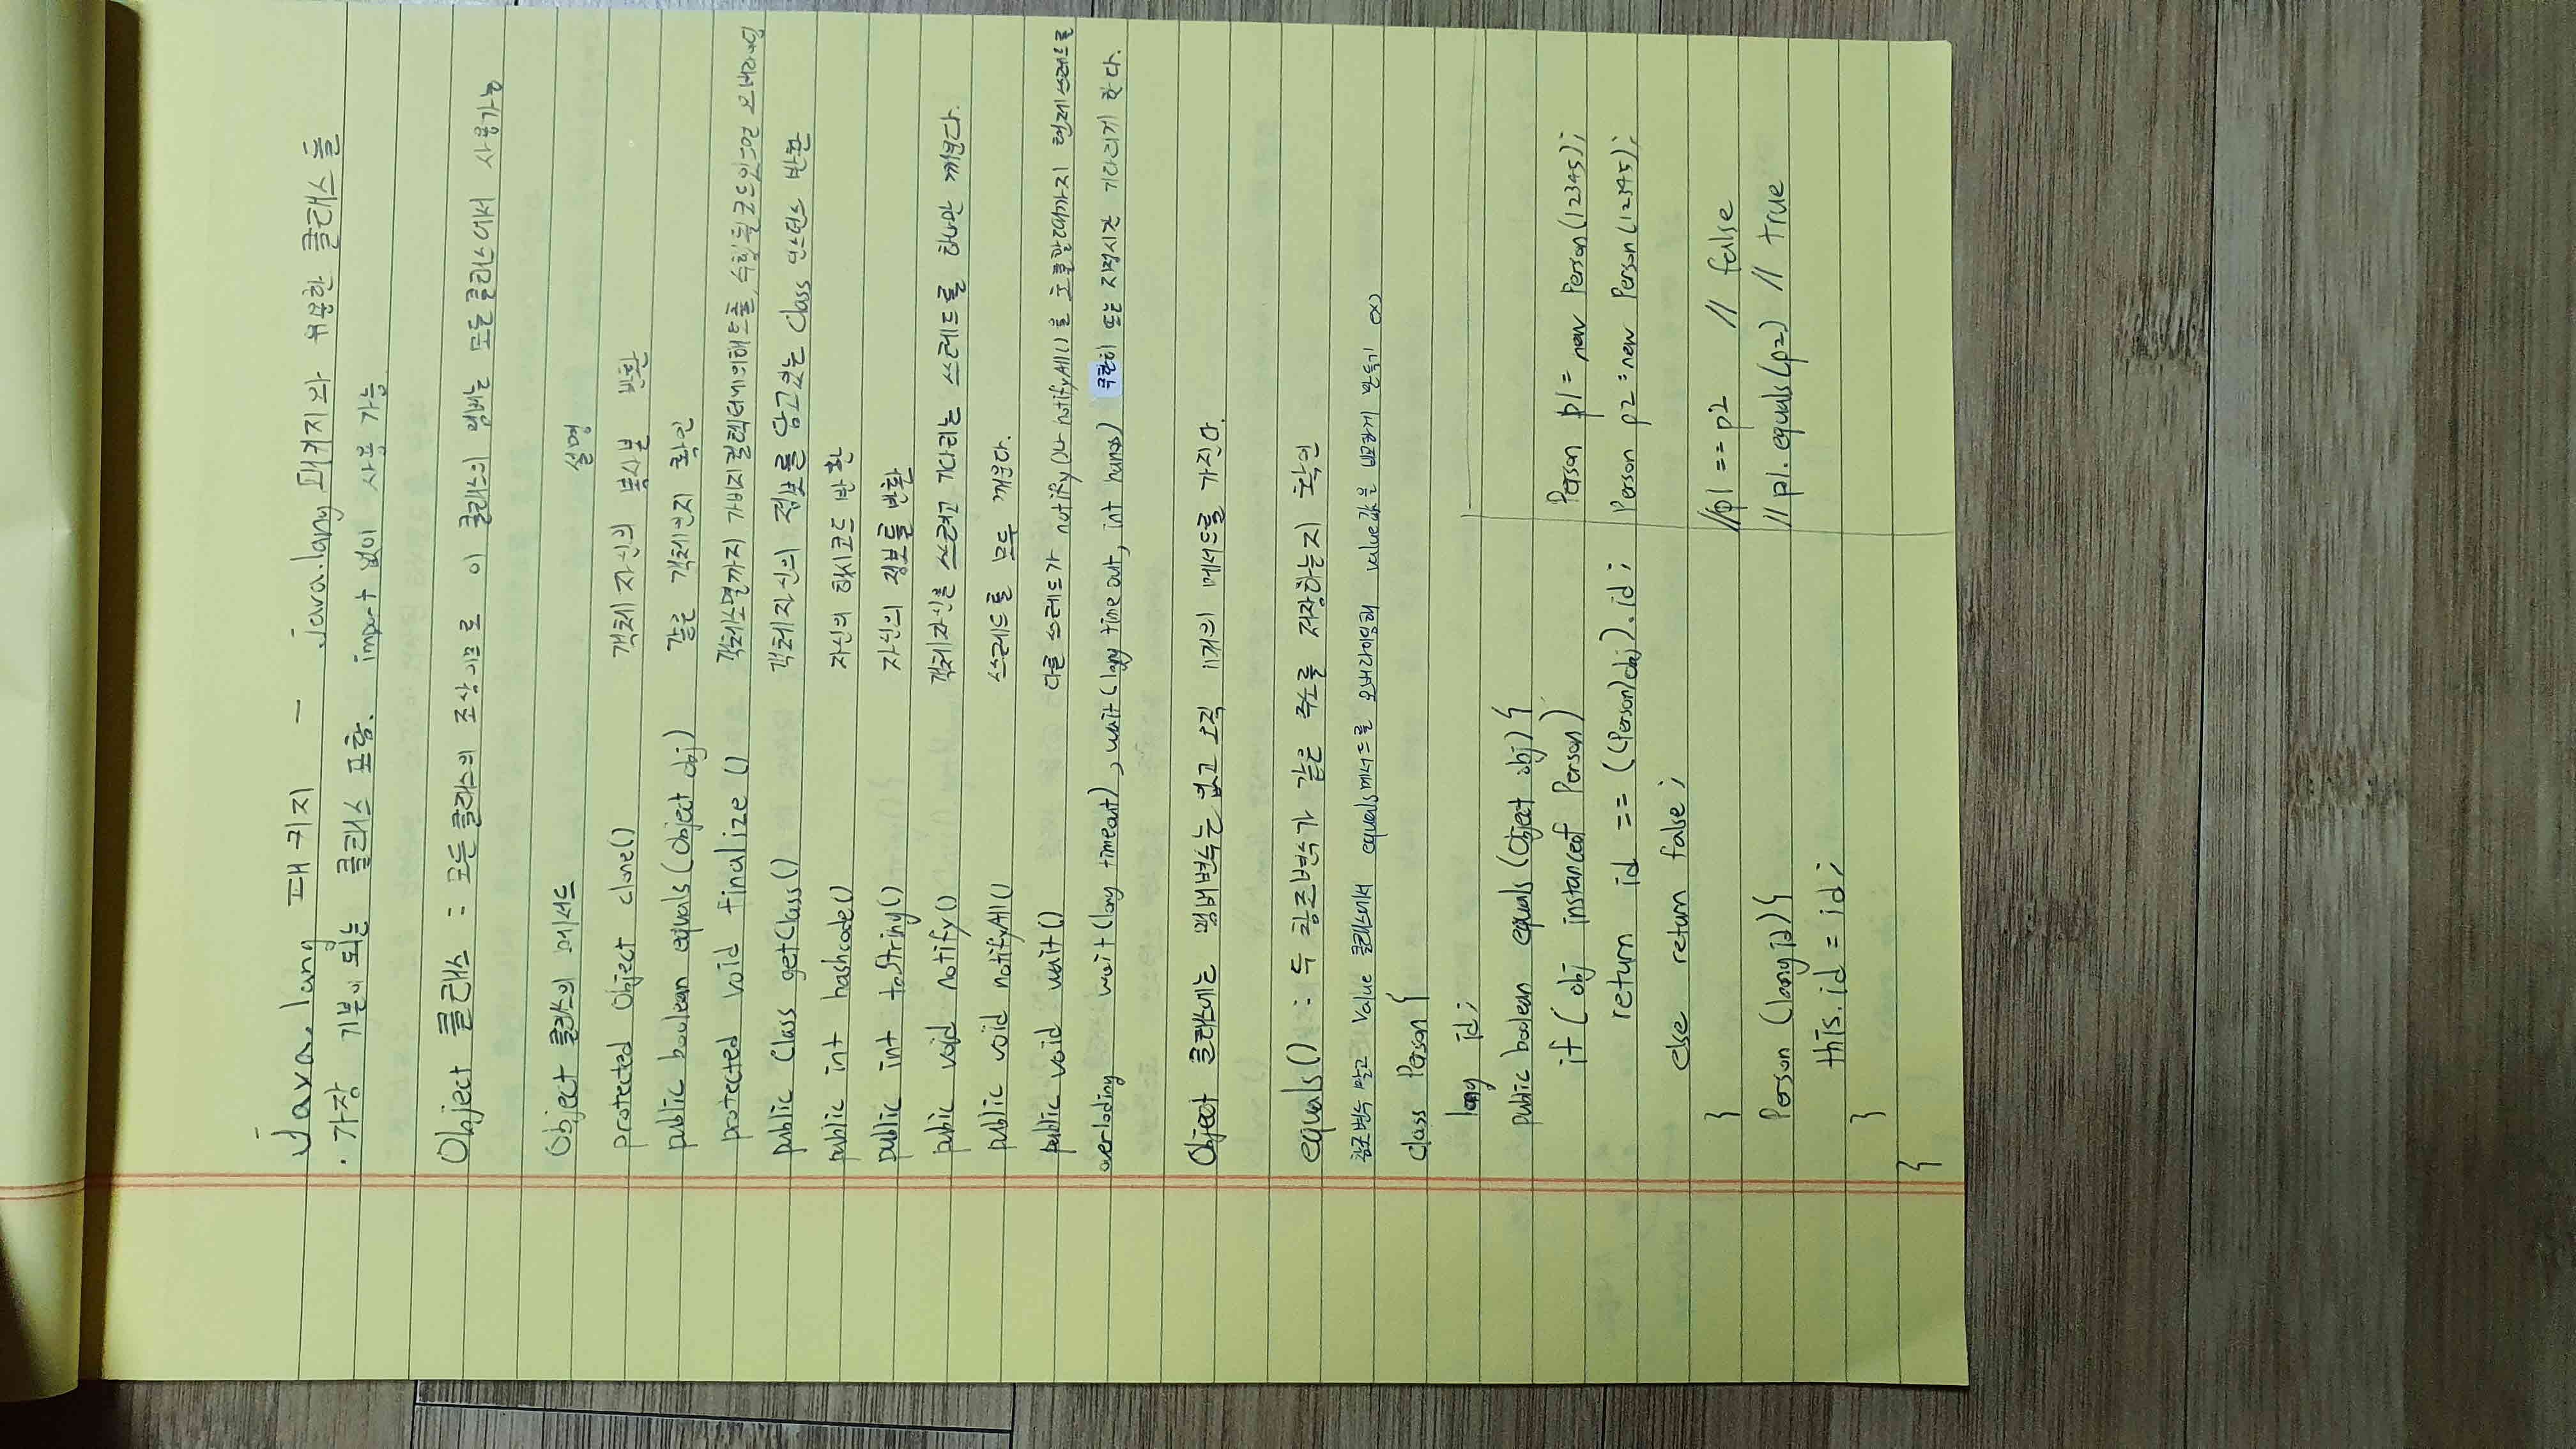 Java.lang 패키지 - java.lang 패키지와 유용한 클래스 들
· 가장 기본이 되는 클래스 포함. import 없이 사용 가능
Object 클래스 : 모든 클래스의 조상이므로 이 클래스의 멤버는 모든클래스에서 사용가능
Object 클래스의 메서드 설명
protected Object clone() 객체 자신의 복사본 반환
public boolean equals(Object obj) 같은 객체인지 확인
protected void finalize () 객체소멸까지 가비지 컬렉터에의해 호출, 수행될코드있으면 오버라이딩
public Class getClass() 객체자신의 정보를 담고있는 Class 인스턴스 반환
public int hashcode() 자신의 해시코드 반환
public int toString() 자신의 정보를 반환
pubic void notify() 객체자신을 쓰려고 기다리는 쓰레드를 하나만 깨운다.
public void notifyAll() 쓰레드를 모두 깨운다.
public void wait() 다른 쓰레드가 notify()나 notifyAll()을 호출할때까지 현재쓰레드를
overloding wait(long timeout), wait(long time out, int nanos) 무한히 또는 지정시간 기다리게 한다.
Object 클래스에는 멤버변수는 없고 오직 11개의 메서드를 가진다.
equals() : 두 참조변수가 같은 주소를 저장하는지 확인
참조변수 말고 Value 클래스에서 equals메서드를 오버라이딩해 value값을 비교하게 만들기 ex)
class Person {
long id;
public boolean equals(Object obj) {
if ( obj instanceof Person) Person p1 = new Person(12345);
return id == ((Person)obj).id; Person p2 = new Person(12345);
else return false;
} //p1 == p2 // false
Person (long id) { // p1.equals(p2) // true
this.id = id;
}
}